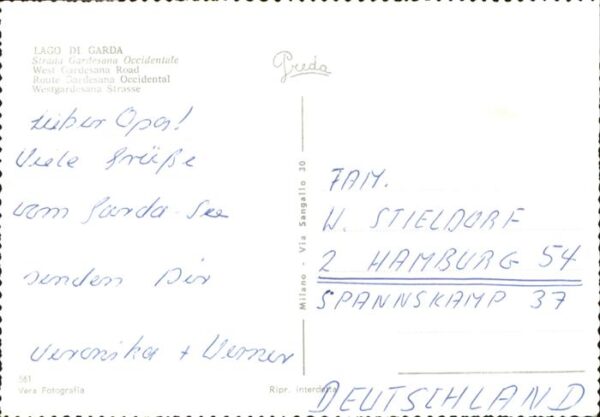 LAGO DI GARDA
Strada Gardesana Occidentale
West Gardesana Road
Route Gardesana Occidental
Westgardesana Strasse
Preda
Lieber Opa!
Viele Grüße
vom Garda-See
senden Dir
Veronika + Werner
561
Vera Fotografia
Milano - Via Sangallo 30
Ripr. interdetta
FAM.
W. STIELDORF
2 HAMBURG 54
SPANNSKAMP 37
DEUTSCHLAND